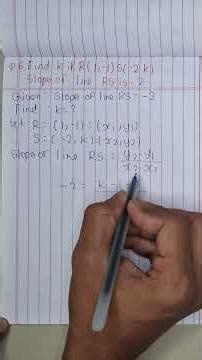 Q.6. Find k if R(1,-1) S(-2,k)
Slope of line RS is -2
Given: Slope of line RS = -2
Find: k = ?
Let R = (1,-1) = (x₁,y₁)
S = (-2,k) = (x₂,y₂)
Slope of line RS = y₂-y₁
x₂-x₁
-2 = k